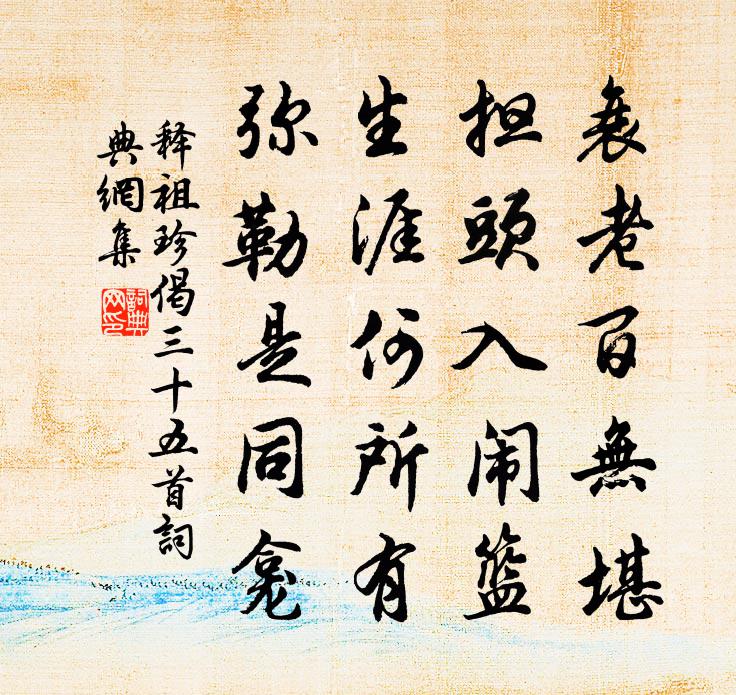 衰老百無堪
担頭入闹籃
生涯何所有
弥勒是同龛
释祖珍偈三十五首詞
典網集
詞典
网印